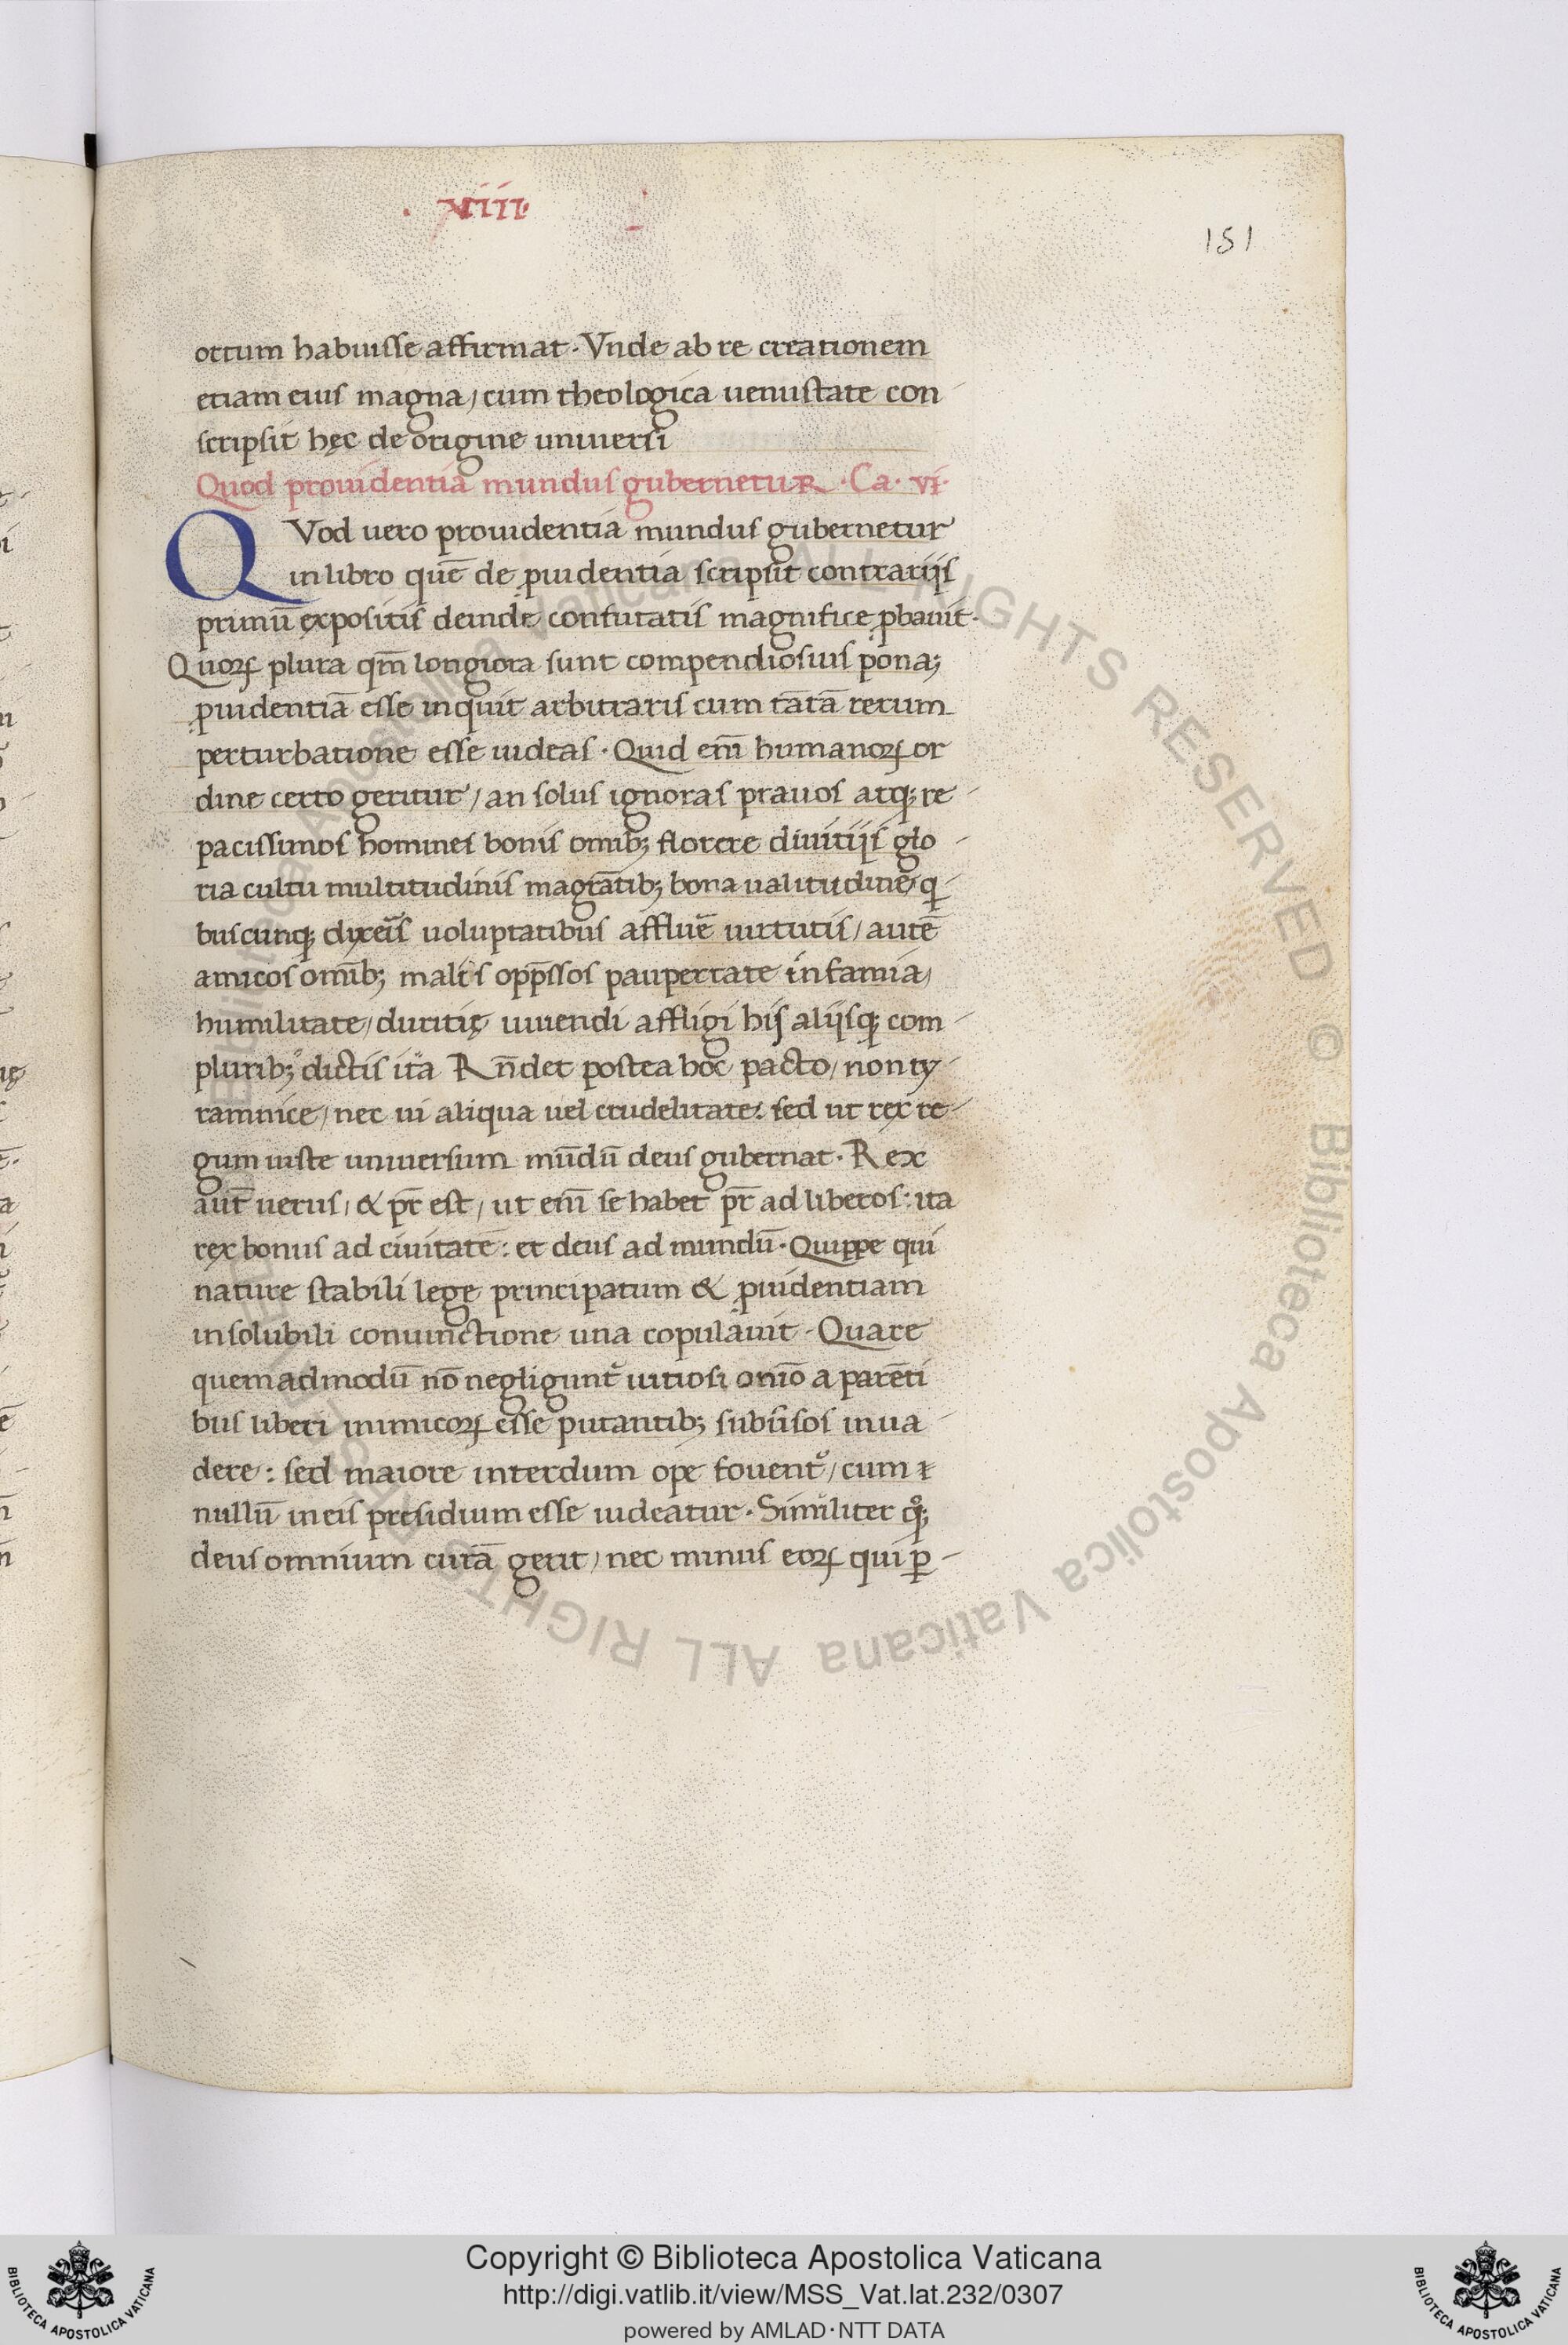 . xiiii.
151
ortum habuisse affirmat. Vnde ab re creationem
etiam eius magna, cum theologica uenustate con-
scripsit hęc de origine uniuersi
Quod prouidentia mundus gubernetur. Ca. vi.
QVod uero prouidentia mundus gubernetur
in libro quē de ꝓuidentia scripsit contrariis
primū expositis deinde confutatis magnifice ꝓbauit.
Quoꝝ plura qm̄ longiora sunt compendiosius ponā;
ꝓuidentiā esse inquit arbitraris cum tātā rerum
perturbatione esse uideas. Quid eni̅ humanoꝝ or
dine certo geritur, an solus ignoras prauos atq; re-
pacissimos homines bonis omib; florere diuitijs glo-
ria cultu multitudinis magratib; bona ualitudine, q-
buscunq; uoluptatibus affluē uirtutis, autē
amicos omib; malis opp̄ssos paupertate infamia,
humilitate, duritię uiuendi affligi his aliisq; com-
plurib; dictis ita Rn̄det postea hoc pacto, non ty-
rannice, nec ui aliqua uel crudelitate: sed ut rex re-
gum iuste uniuersum mūdū deus gubernat. Rex
aut̄ uerus, & pr̄ est, ut eni̅ se habet pr̄ ad liberos: ita
rex bonus ad ciuitatē: et deus ad mundū. Quippe qui
nature stabili lege principatum & ꝓuidentiam
insolubili coniunctione una copulauit. Quare
quemadmodū nō negligunt᷑ uitiosi om̄io a parēti
bus liberi inimicoꝝ esse putantib; inua-
dere: sed maiore interdum ope fouent᷑, cum
nullū in eis presidium esse uideatur. Similiter qͦq;
deus omnium curā gerit, nec minus eoꝝ qui ꝑ-
Copyright © Biblioteca Apostolica Vaticana
http://digi.vatlib.it/view/MSS_Vat.lat.232/0307
powered by AMLAD·NTT DATA
BIBLIOTECA APOSTOLICA VATICANA
BIBLIOTECA APOSTOLICA VATICANA
© Biblioteca Apostolica Vaticana ALL RIGHTS RESERVED © Biblioteca Apostolica Vaticana ALL RIGHTS RESERVED